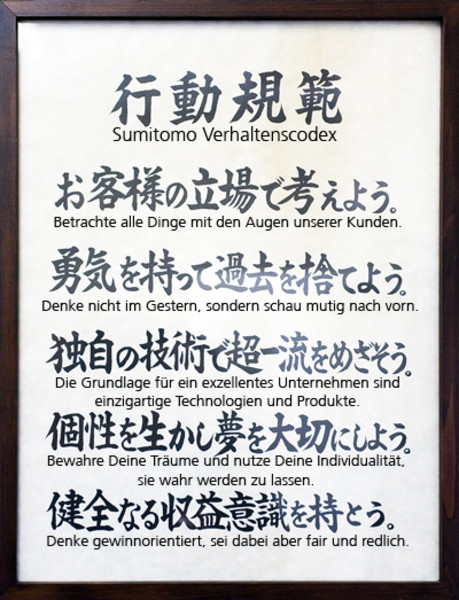 行動規範
Sumitomo Verhaltenscodex
お客様の立場で考えよう。
Betrachte alle Dinge mit den Augen unserer Kunden.
勇気を持って過去を捨てよう。
Denke nicht im Gestern, sondern schau mutig nach vorn.
独自の技術で超一流をめざそう。
Die Grundlage für ein exzellentes Unternehmen sind
einzigartige Technologien und Produkte.
個性を生かし夢を大切にしよう。
Bewahre Deine Träume und nutze Deine Individualität,
sie wahr werden zu lassen.
健全なる収益意識を持とう。
Denke gewinnorientiert, sei dabei aber fair und redlich.